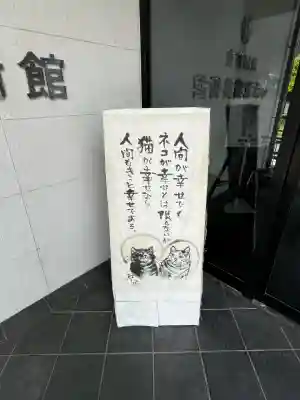 人間が幸せでも
ネコが幸せとは限らないが
猫が幸せなら
人間もきっと幸せであろう。
館